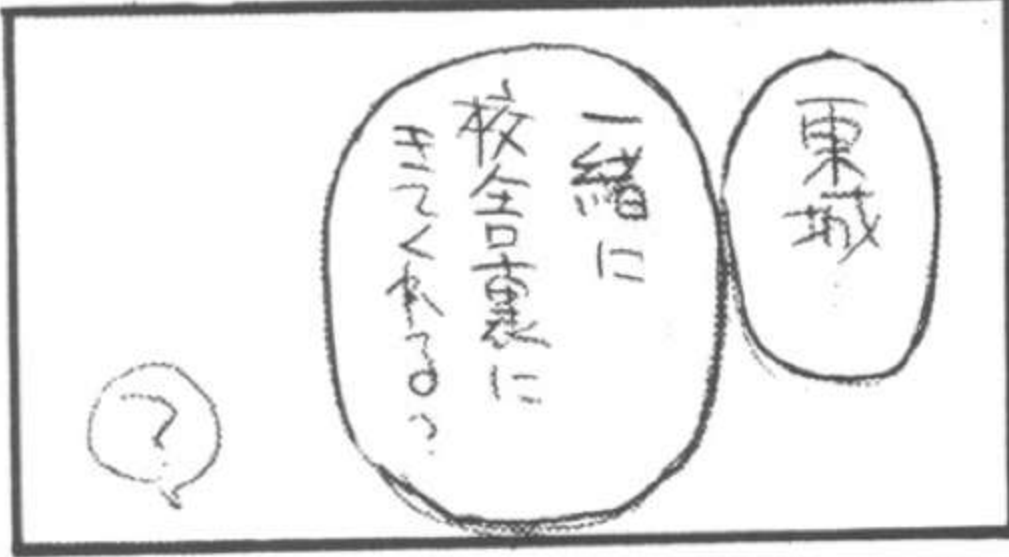 東城
一緒に
校舎裏に
きてくれる?
?